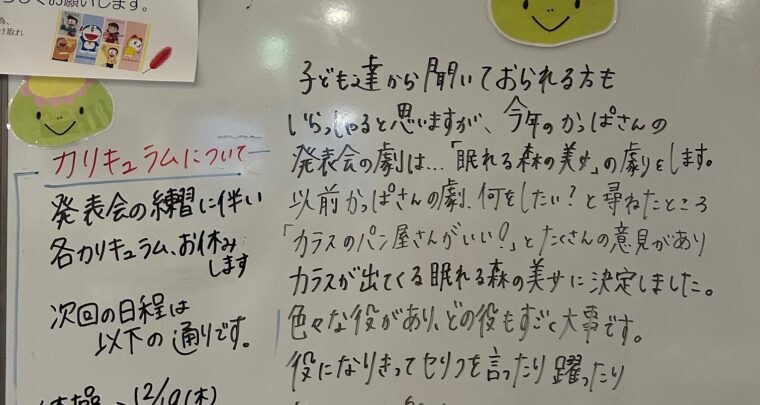 お願いします。
カリキュラムについて
発表会の練習に伴い
各カリキュラム、お休み
します
次回の日程は
以下の通りです。
12/19(木)
子ども達から聞いておられる方も
いらっしゃると思いますが、今年のかっぱさんの
発表会の劇は…「眠れる森の美女」の劇をします。
以前かっぱさんの劇、何をしたい?と尋ねたところ
「カラスのパン屋さんがいい!」とたくさんの意見があり
カラスが出てくる眠れる森の美女に決定しました。
色々な役があり、どの役もすごく大事です。
役になりきってセリフを言ったり躍ったり